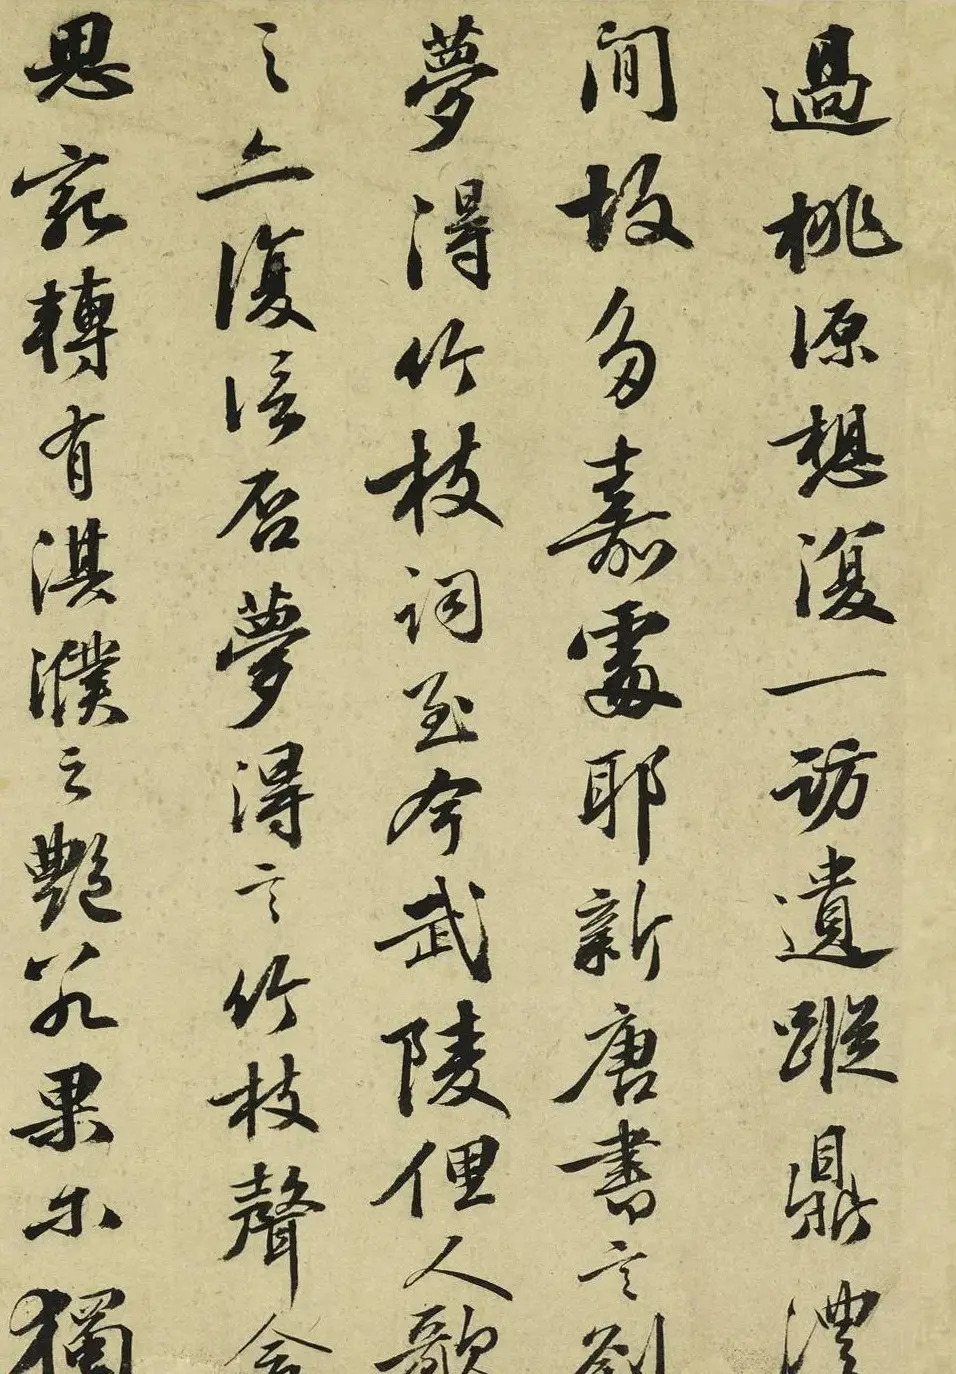 過桃源想復一訪遺蹤鼎澧
間故多嘉處耶新唐書言劉
夢得竹枝詞至今武陵俚人歌
之亦復信否夢得言竹枝聲含
思宛轉有淇濮之艷若果尔獨